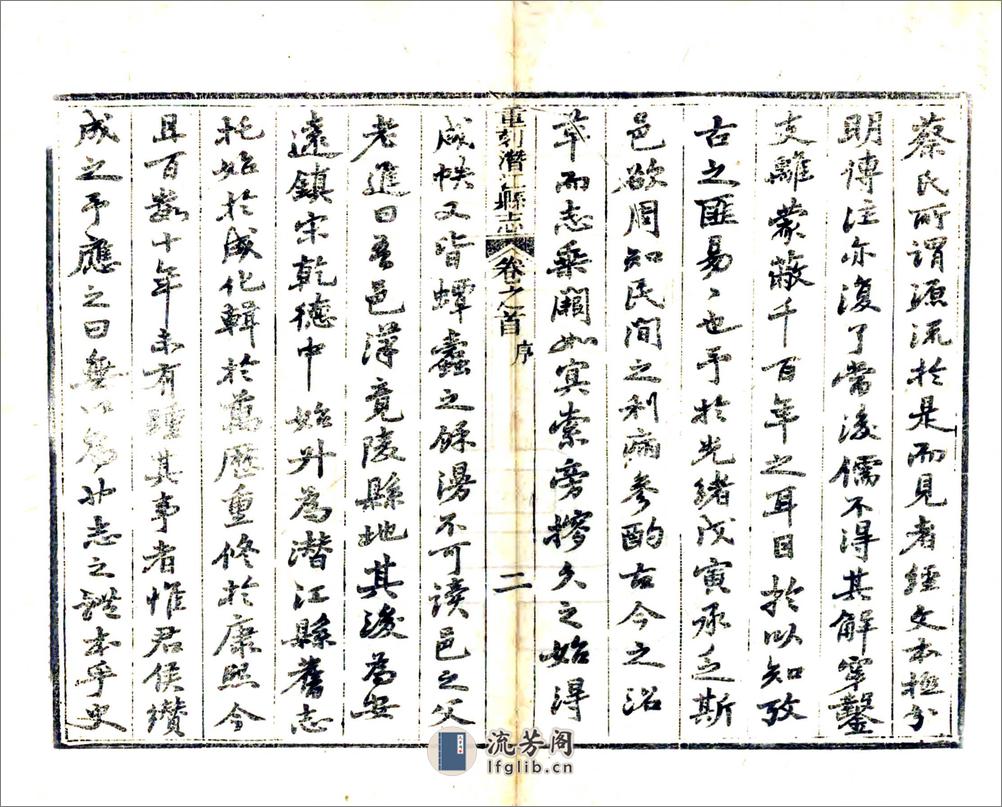 蔡氏所謂源流於是而見者經文本極分
明傳注亦復了當後儒不得其解穿鑿
支離蒙蔽千百年之耳目於以知攷
古之匪易〻也予於光緒戊寅承乏斯
邑欲周知民間之利病參酌古今之沿
革而志乘闕如冥索旁搜久之始得
重刻潛江縣志 卷之首 序 二
咸帙又皆蟫蠹之餘漫不可讀邑之父
老進曰吾邑漢竟陵縣地其後為安
遠鎮宋乾德中始升為潛江縣舊志
托始於成化輯於萬歷重修於康熙今
且百數十年未有踵其事者惟君侯纘
成之予應之曰無以為也志之體本乎史
流芳阁
lfglib.cn